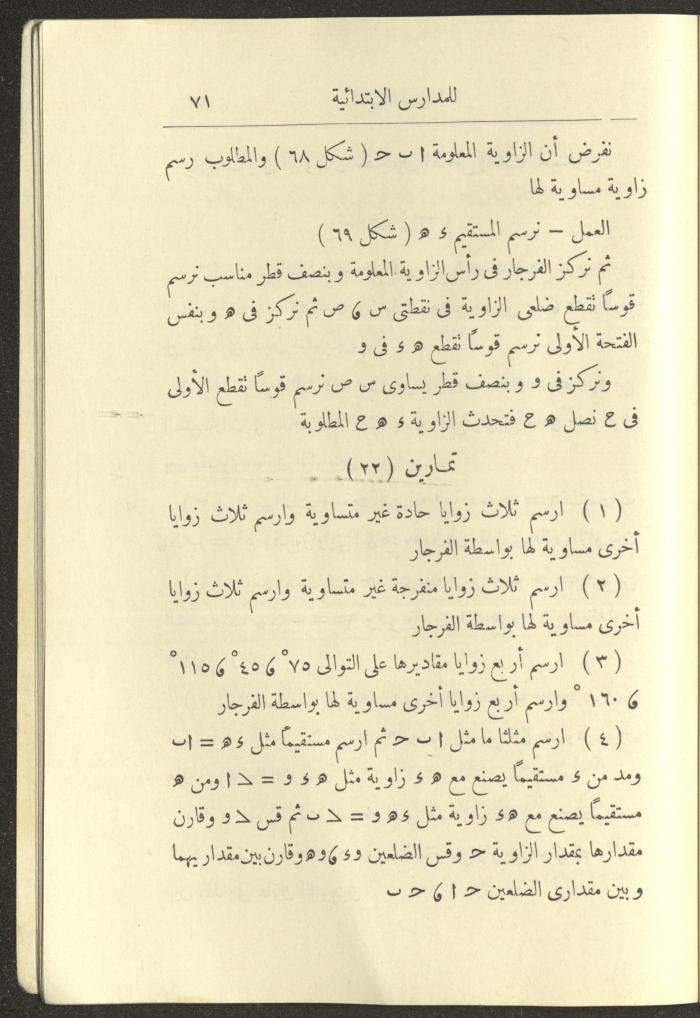 للمدارس الابتدائية ٧١
نفرض أن الزاوية المعلومة ا ب ح ( شكل ٦٨ ) والمطلوب رسم
زاوية مساوية لها
العمل — نرسم المستقيم ء ه ( شكل ٦٩ )
ثم نركز الفرجار فى رأس الزاوية المعلومة وبنصف قطر مناسب نرسم
قوسًا تقطع ضلعى الزاوية فى نقطتى س ، ص ثم نركز فى ه وبنفس
الفتحة الأولى نرسم قوسًا تقطع ه ء فى و
ونركز فى و وبنصف قطر يساوى س ص نرسم قوسًا تقطع الأولى
فى ح نصل ه ح فتحدث الزاوية ء ه ح المطلوبة
تمارين (٢٢)
(١) ارسم ثلاث زوايا حادة غير متساوية وارسم ثلاث زوايا
أخرى مساوية لها بواسطة الفرجار
(٢) ارسم ثلاث زوايا منفرجة غير متساوية وارسم ثلاث زوايا
أخرى مساوية لها بواسطة الفرجار
(٣) ارسم أربع زوايا مقاديرها على التوالى ٧٥° ، ٤٥° ، ١١٥°
، ١٦٠° وارسم أربع زوايا أخرى مساوية لها بواسطة الفرجار
(٤) ارسم مثلثا ما مثل ا ب ح ثم ارسم مستقيمًا مثل ء ه = ا ب
ومد من ء مستقيمًا يصنع مع ه ء زاوية مثل ه ء و = ∠ ا ومن ه
مستقيمًا يصنع مع ه ء زاوية مثل ء ه و = ∠ ب ثم قس ∠ و وقارن
مقدارها بمقدار الزاوية ح وقس الضلعين و ء ، و ه وقارن بين مقداريهما
وبين مقدارى الضلعين ح ا ، ح ب